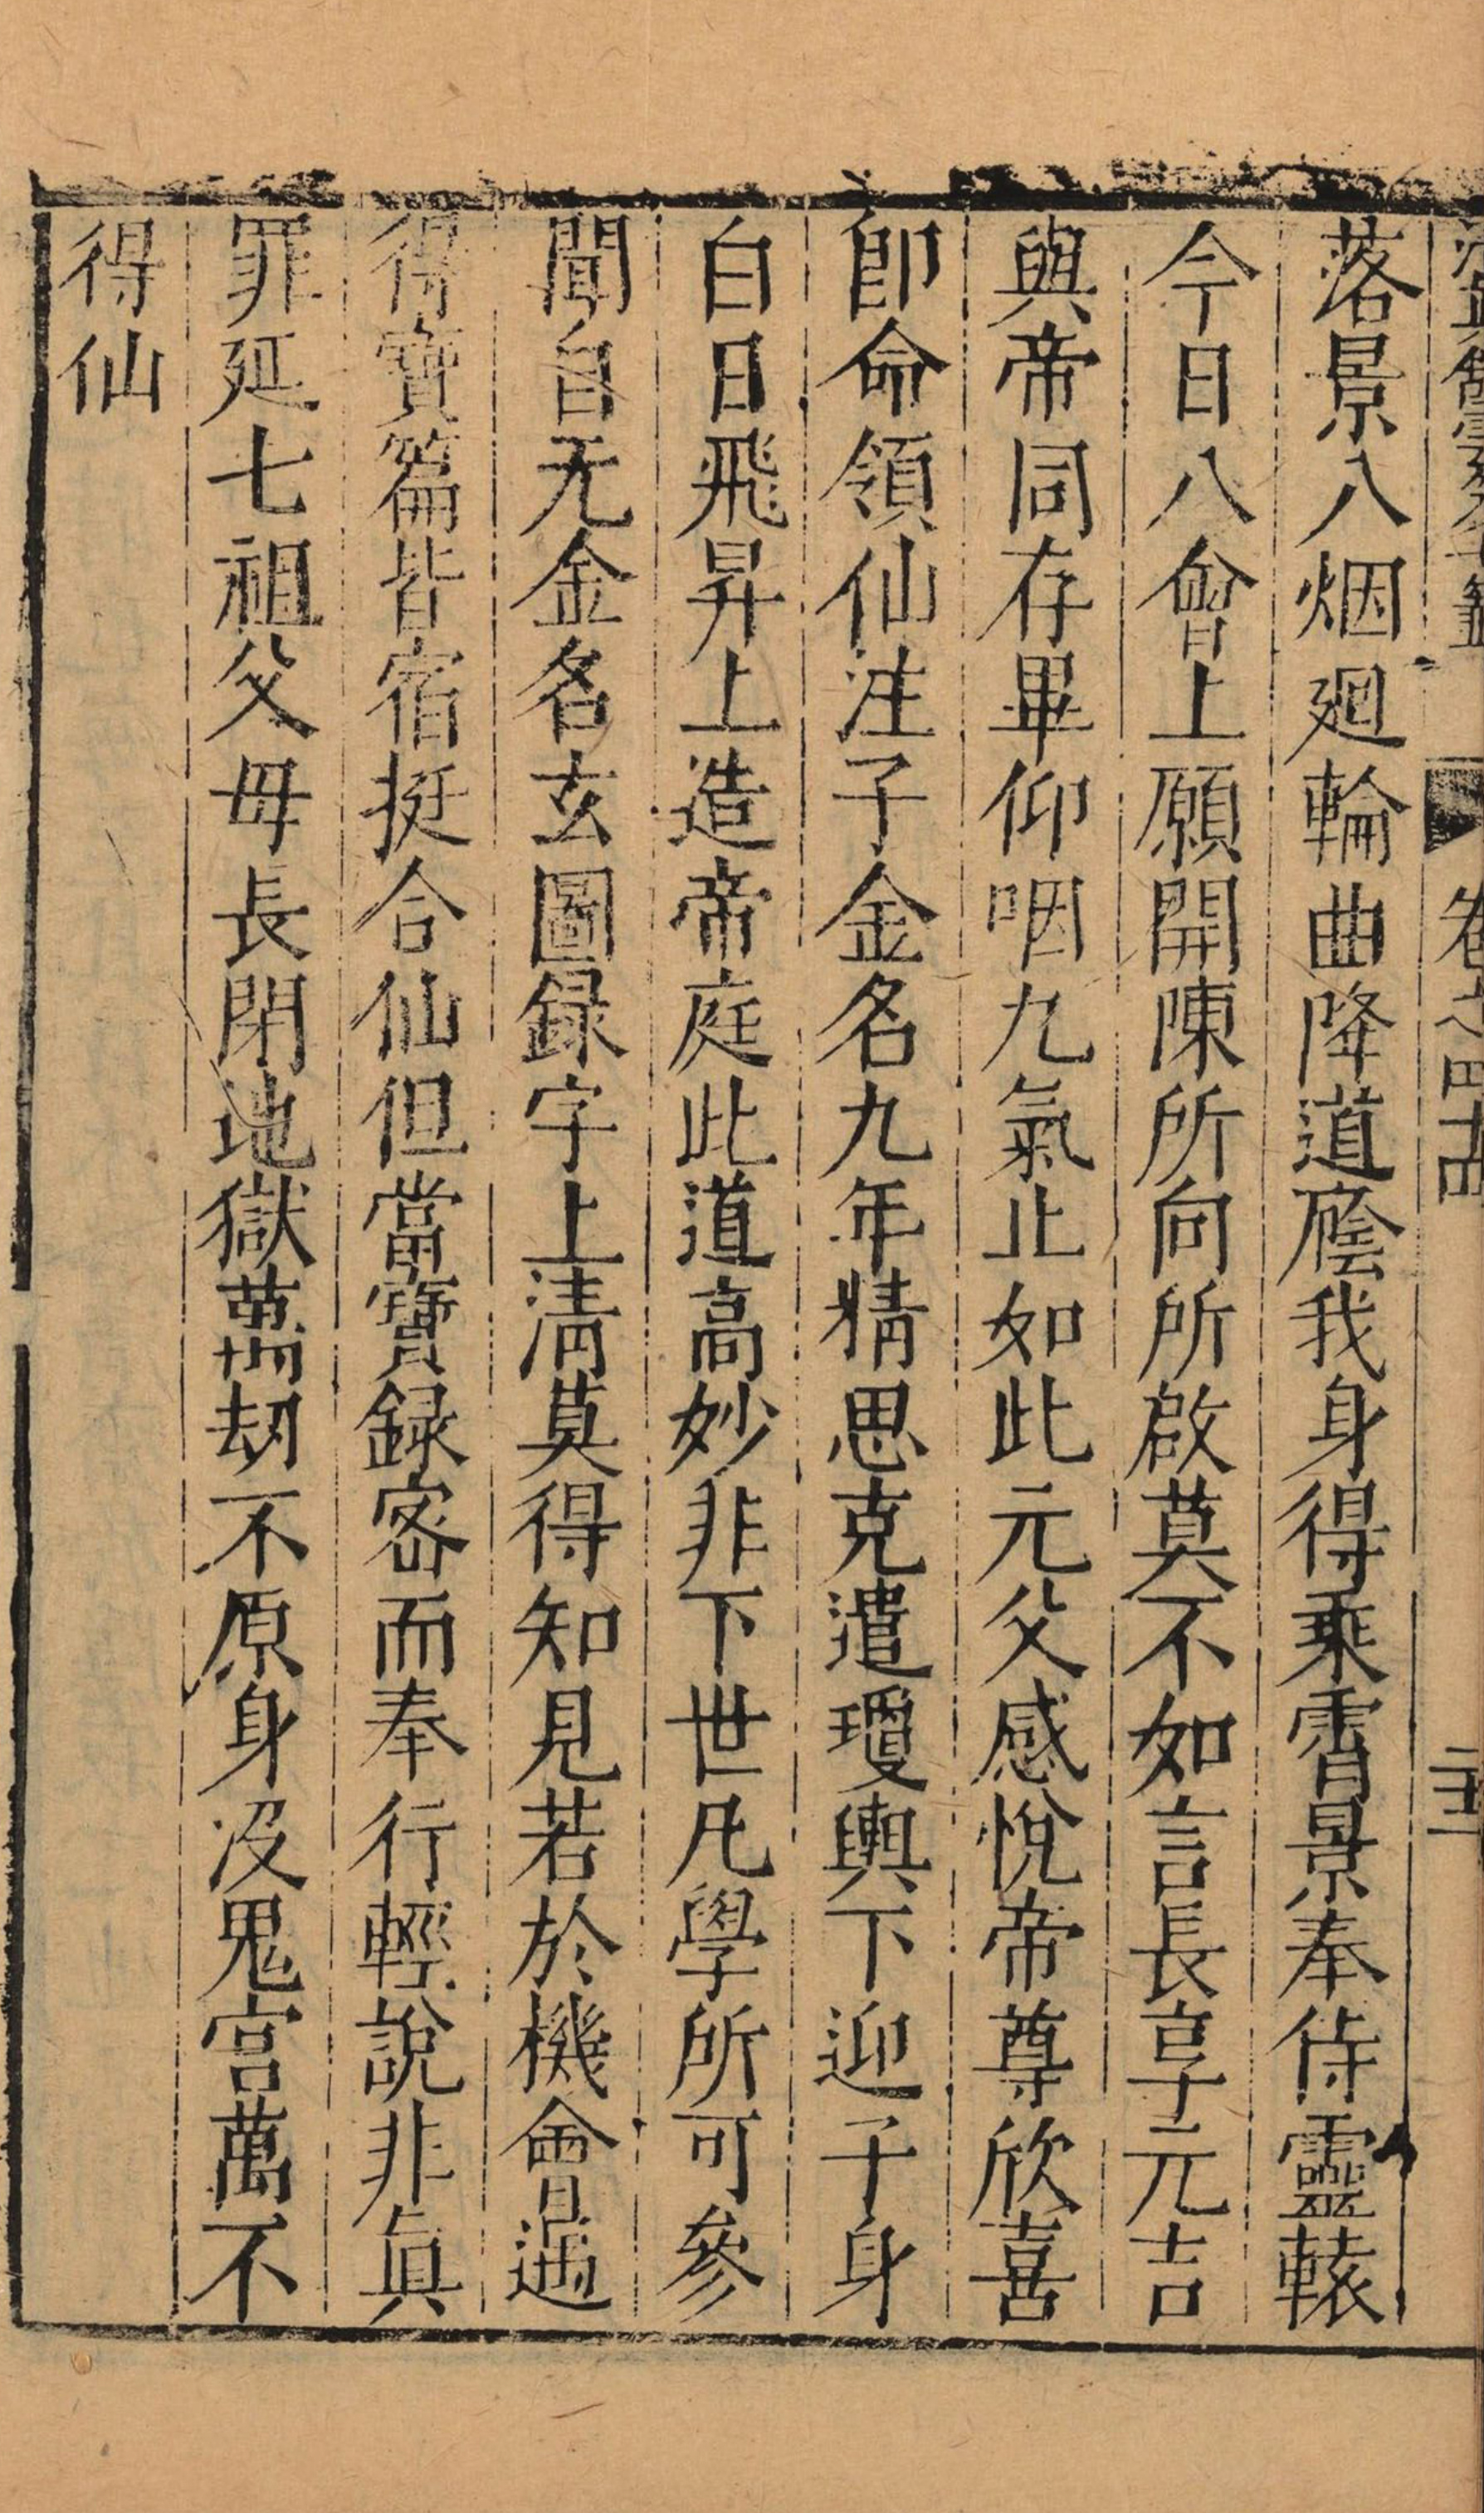 卷之四十四
二十一
落景八烟廻輪曲降道廕我身得乘霄景奉侍靈轅
今日八會上願開陳所向所啟莫不如言長享元吉
與帝同存畢仰咽九氣止如此元父感悅帝尊欣喜
卽命領仙注子金名九年精思克遣瓊輿下迎子身
白日飛昇上造帝庭此道高妙非下世凡學所可參
聞自无金名玄圖錄字上淸莫得知見若於機會遇
得寶篇皆宿挺合仙但當寶錄密而奉行輕說非眞
罪延七祖父母長閉地獄萬刼不原身沒鬼宮萬不
得仙